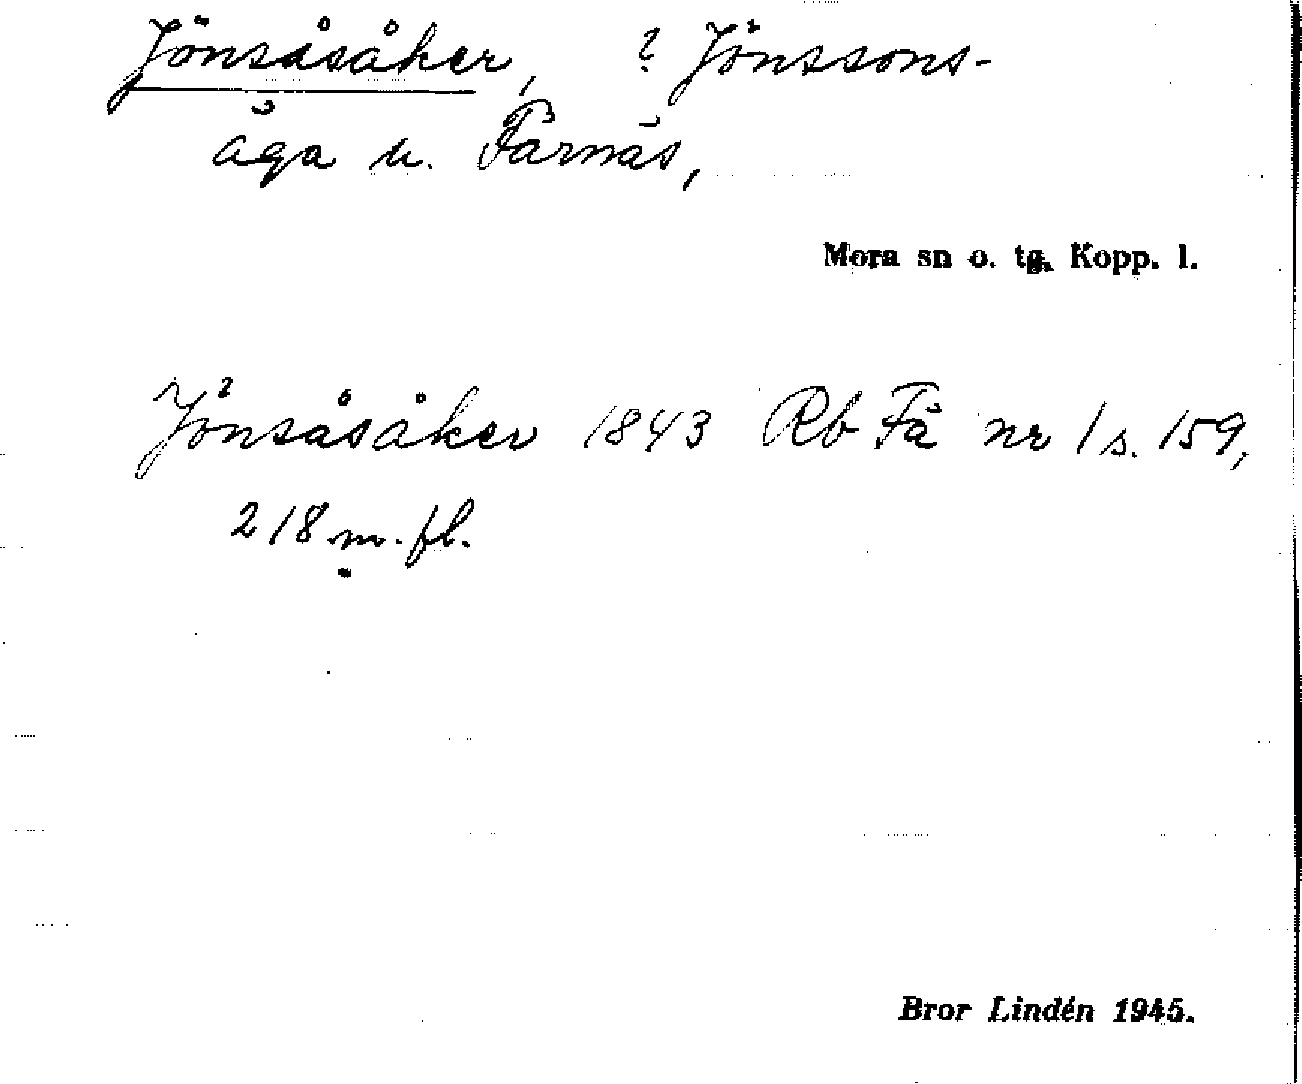 Jönsåsåker, ? Jönssons-
äga u. Färnäs,
Mora sn o. tg. Kopp. l.
Jönsåsåker 1843 Rb Få nr 1 s. 159,
218 m. fl.
Bror Lindén 1945.